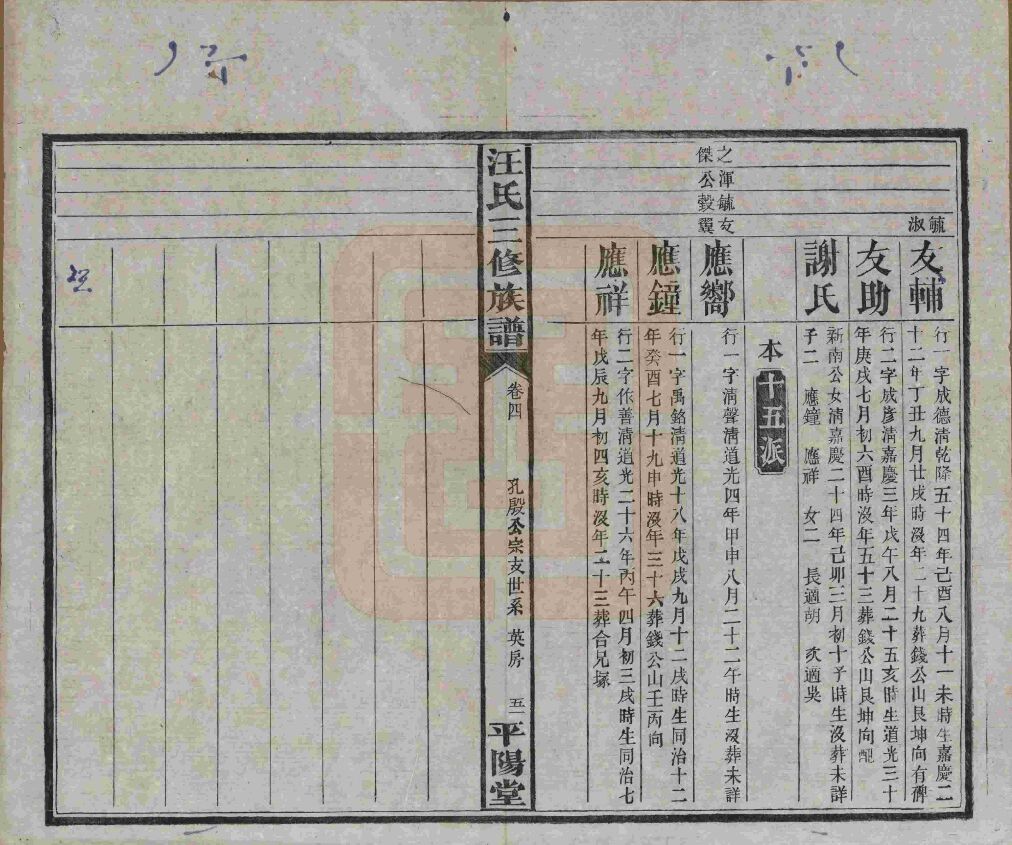 毓
淑
友輔
行一字成德清乾隆五十四年己酉八月十一未時生嘉慶二
十二年丁丑九月廿戌時沒年二十九葬錢公山艮坤向有碑
友助
行二字成彥清嘉慶三年戊午八月二十五亥時生道光三十
年庚戌七月初六酉時沒年五十三葬錢公山艮坤向配
謝氏
新南公女清嘉慶二十四年己卯三月初十子時生沒葬未詳
子二 應鐘 應祥 女二 長適胡 次適吳
本十五派
之渾毓友
傑公毅翼
應嚮
行一字清聲清道光四年甲申八月二十二午時生沒葬未詳
應鐘
行一字禹銘清道光十八年戊戌九月十二戌時生同治十二
年癸酉七月十九申時沒年三十六葬錢公山壬丙向
應祥
行二字作善清道光二十六年丙午四月初三戌時生同治七
年戊辰九月初四亥時沒年二十三葬合兄塚
汪氏三修族譜
卷四
孔殷公宗支世系 英房
五一
平陽堂